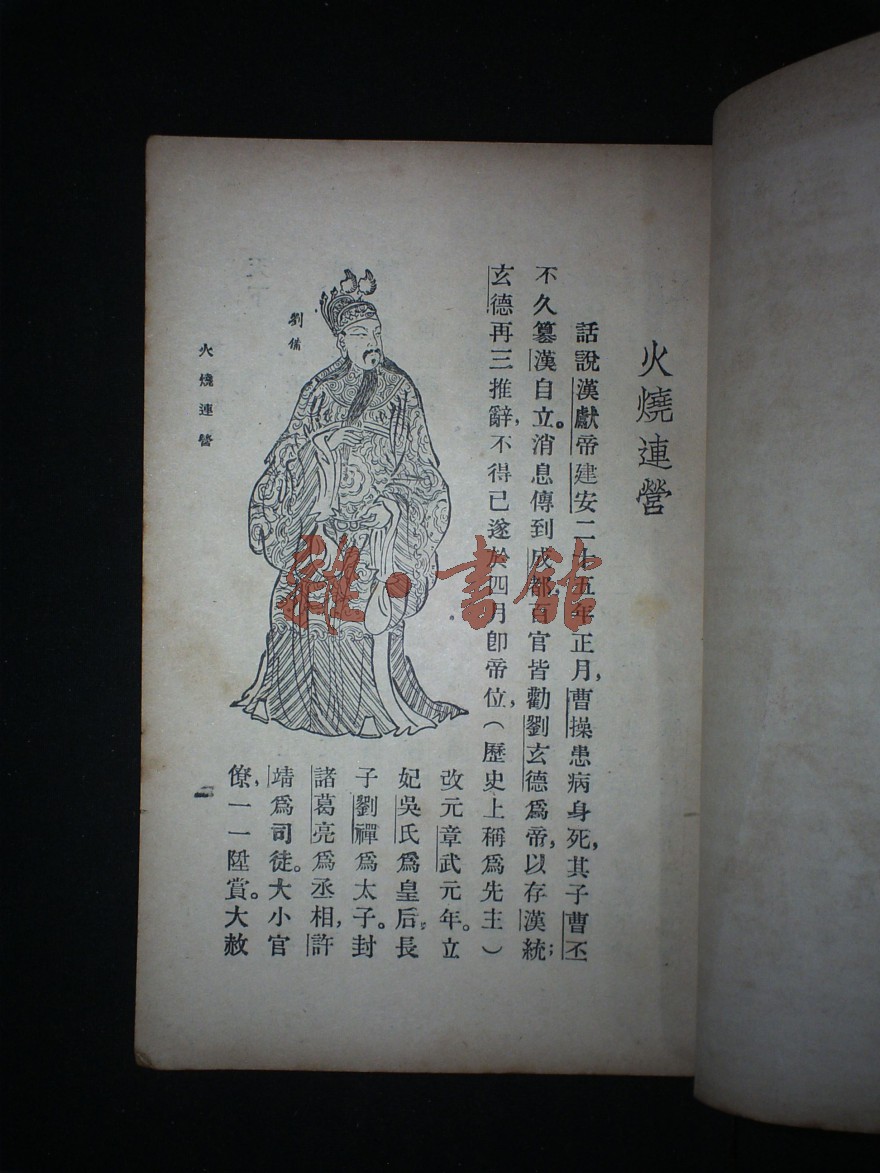 火燒連營
話說漢獻帝建安二十五年正月，曹操患病身死，其子曹丕
不久篡漢自立。消息傳到成都，百官皆勸劉玄德爲帝，以存漢統；
玄德再三推辭，不得已遂於四月卽帝位，（歷史上稱爲先主）
改元章武元年。立
妃吳氏爲皇后，長
子劉禪爲太子。封
諸葛亮爲丞相，許
靖爲司徒。大小官
僚，一一陞賞。大赦
劉備
火燒連營
雜·書館